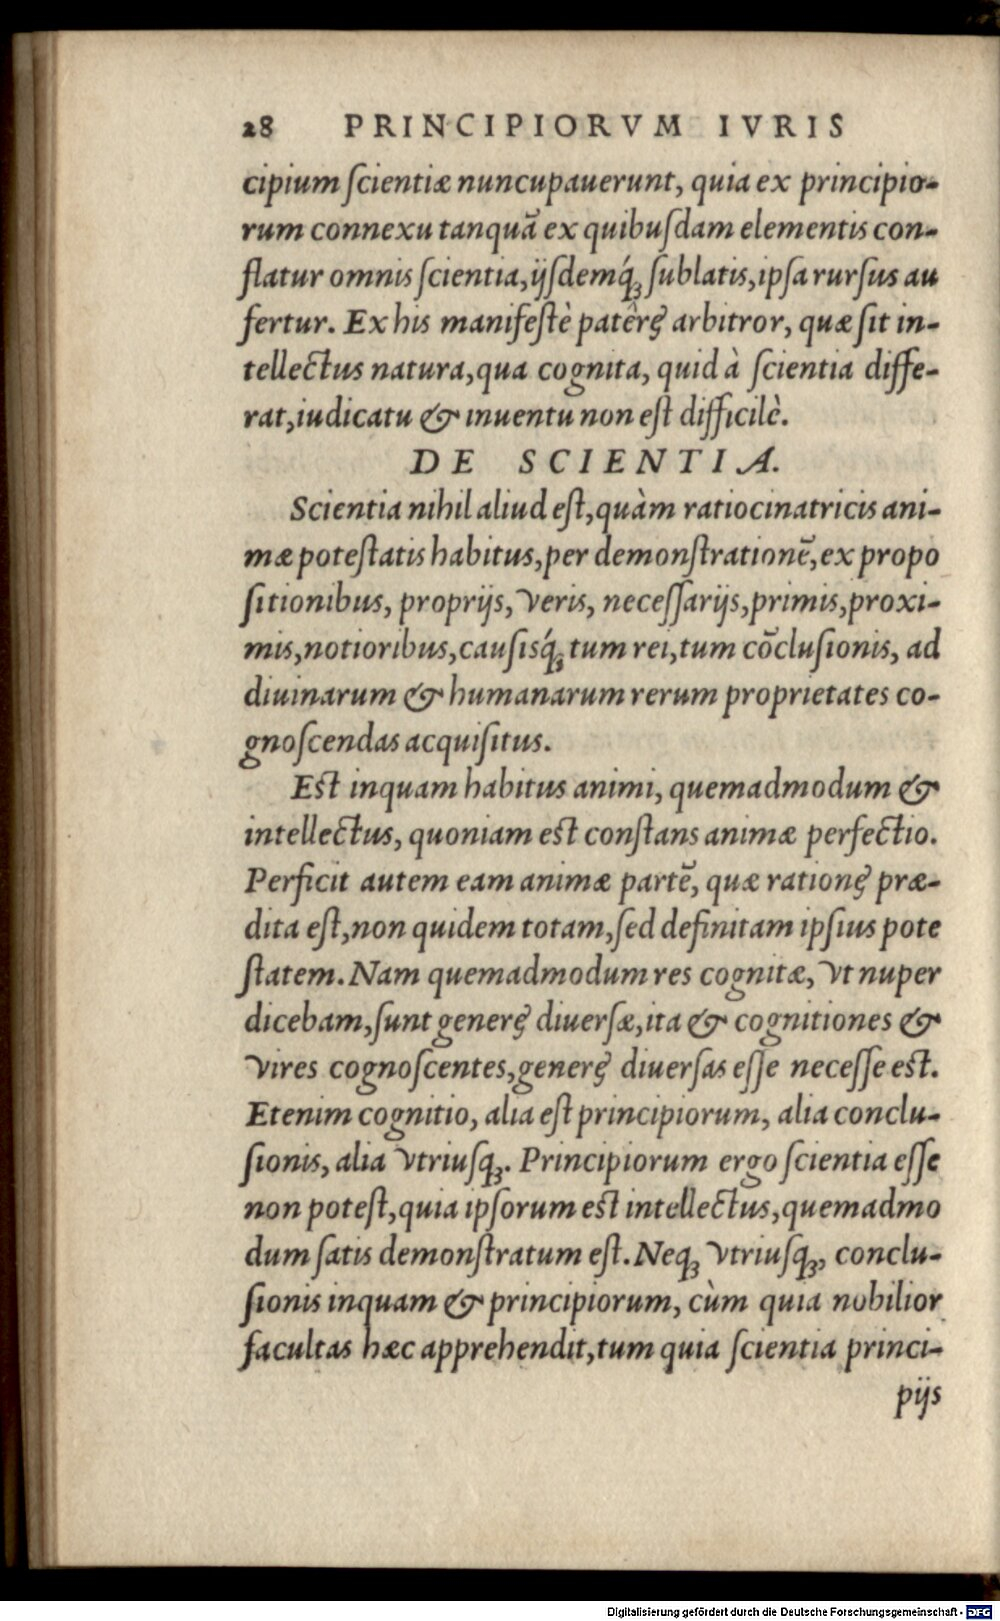 28 PRINCIPIORVM IVRIS
cipium ſcientiæ nuncupauerunt, quia ex principio-
rum connexu tanquā ex quibuſdam elementis con-
flatur omnis ſcientia, ijſdemq́ꝫ ſublatis, ipſa rurſus au
fertur. Ex his manifeſtè patêrę arbitror, quæ ſit in-
tellectus natura, qua cognita, quid à ſcientia diffe-
rat, iudicatu & inuentu non eſt difficilè.
DE SCIENTIA.
Scientia nihil aliud eſt, quàm ratiocinatricis ani-
mæ poteſtatis habitus, per demonſtrationē, ex propo
ſitionibus, proprijs, veris, neceſſarijs, primis, proxi-
mis, notioribus, cauſisq́ꝫ tum rei, tum cōcluſionis, ad
diuinarum & humanarum rerum proprietates co-
gnoſcendas acquiſitus.
Est inquam habitus animi, quemadmodum &
intellectus, quoniam est conſtans animæ perfectio.
Perficit autem eam animæ partē, quæ rationę præ-
dita eſt, non quidem totam, ſed definitam ipſius pote
ſtatem. Nam quemadmodum res cognitæ, vt nuper
dicebam, ſunt generę diuerſæ, ita & cognitiones &
vires cognoſcentes, generę diuerſas eſſe neceſſe est.
Etenim cognitio, alia eſt principiorum, alia conclu-
ſionis, alia vtriuſqꝫ. Principiorum ergo ſcientia eſſe
non poteſt, quia ipſorum est intellectus, quemadmo
dum ſatis demonſtratum eſt. Neqꝫ vtriuſqꝫ, conclu-
ſionis inquam & principiorum, cùm quia nobilior
facultas hæc apprehendit, tum quia ſcientia princi-
pijs
Digitalisierung gefördert durch die Deutsche Forschungsgemeinschaft - DFG